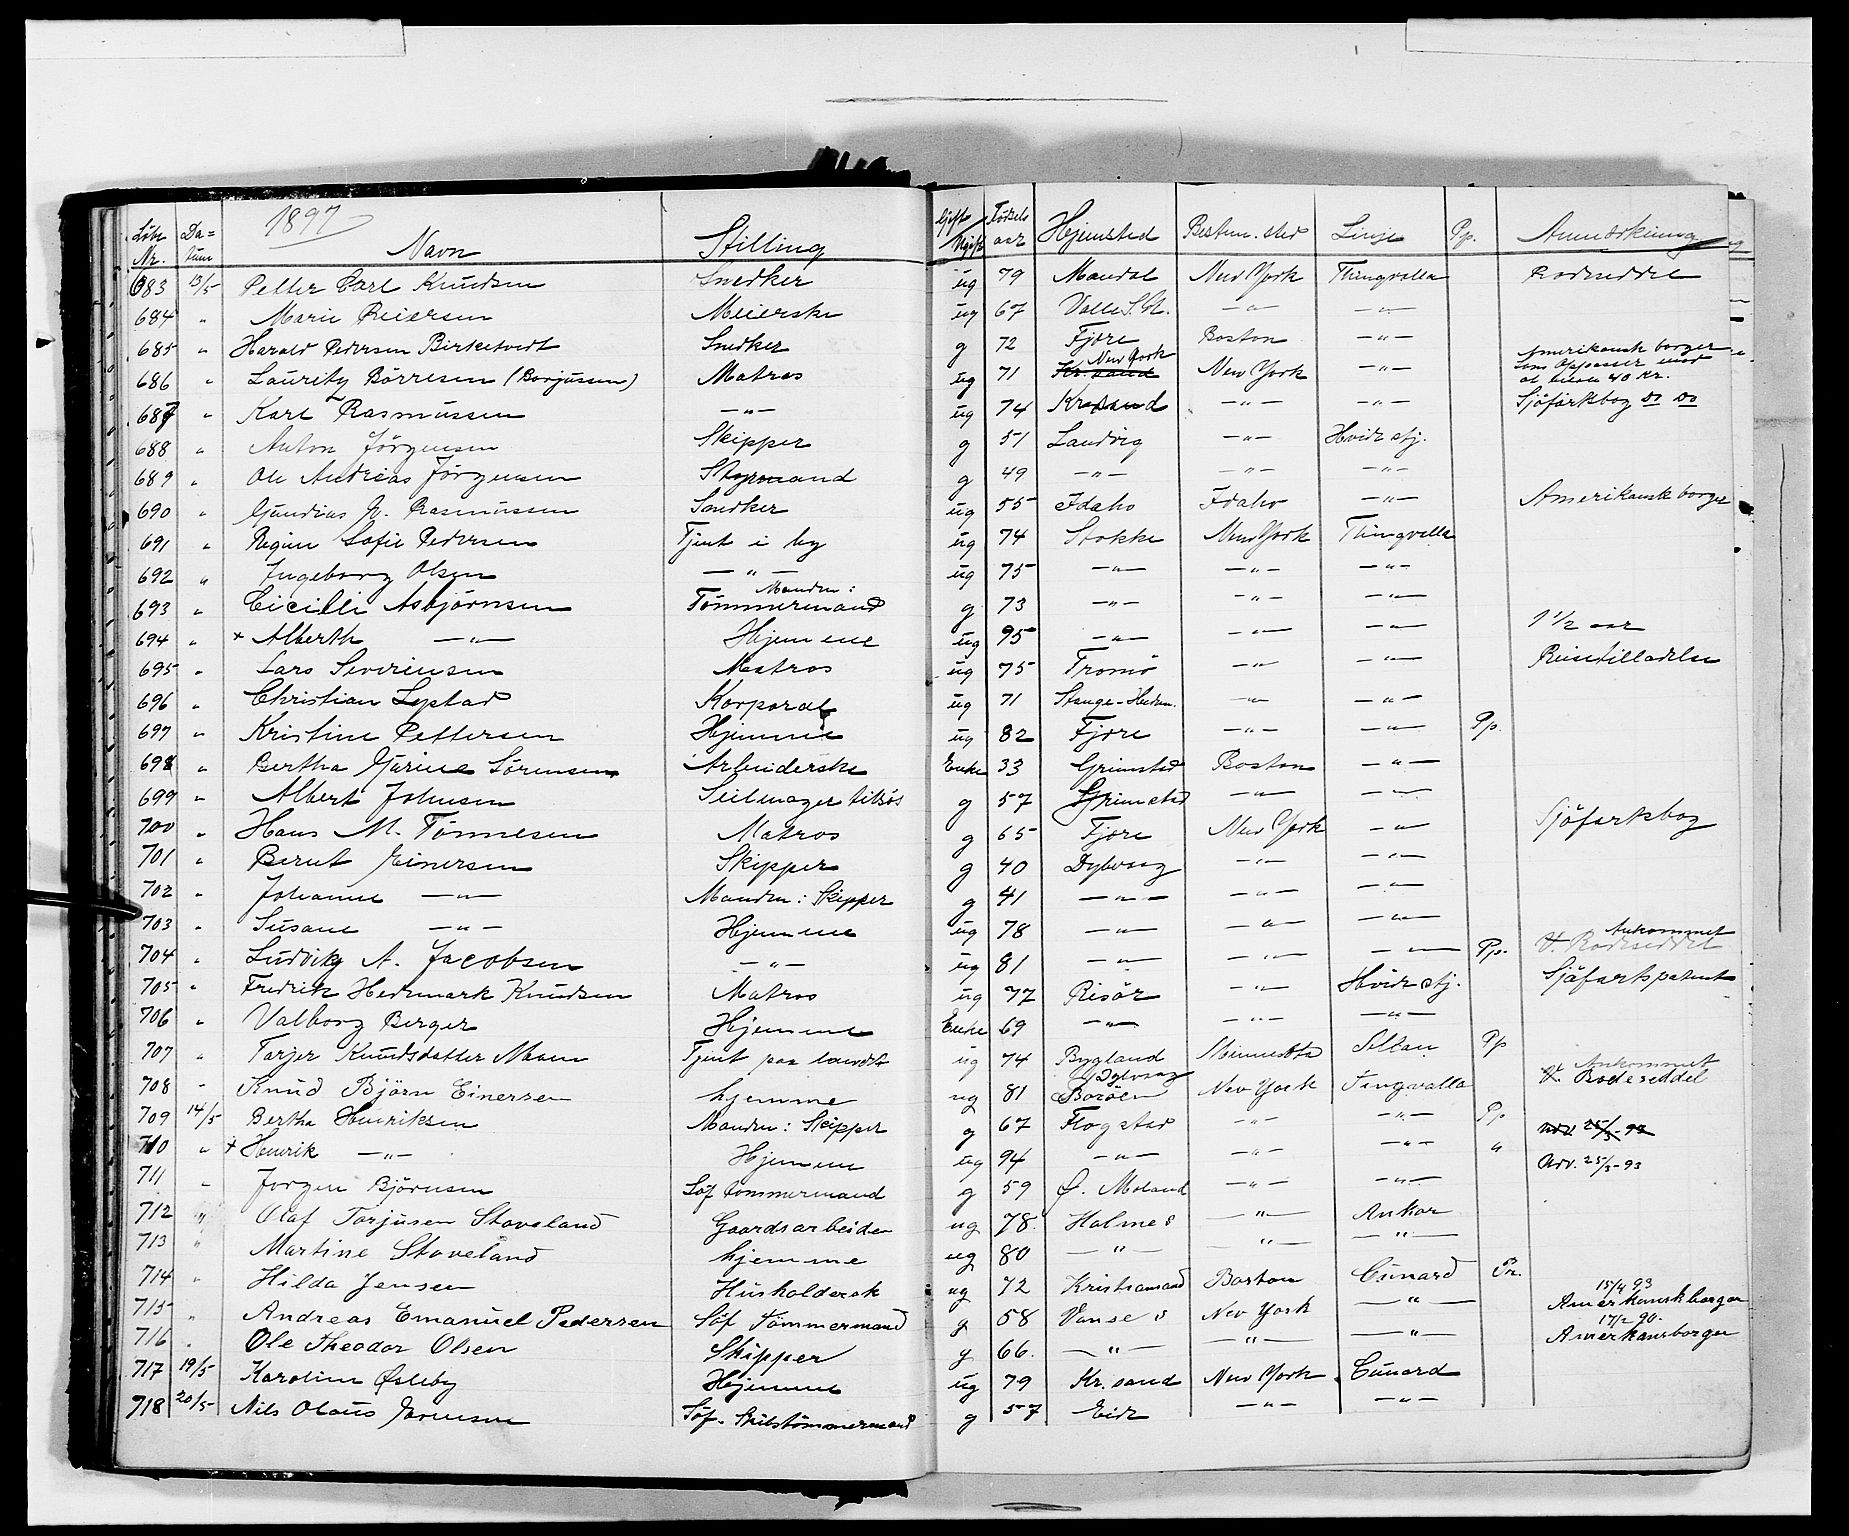 1897
Løbe Nr. Datum Navn Stilling Gift Ugift Fødsels aar Hjemsted Bestem. sted Linje Pp. Anmærkning
683 13/5 Petter Carl Knudsen Snedker ug 79 Mandal New York Thingvalla Rodseddel
684 " Marie Reiersen Meierske ug 67 Valle S. St. —"— —"—
685 " Harald Pedersen Birketvedt Snedker g 72 Fjære Boston —"—
686 " Lauritz Börresen (Borjussen) Matros ug 71 Kr.sand New York New York —"— Amerikansk borger
som Oppasser mod
at betale 40 Kr.
687 " Karl Rasmussen —"— ug 74 Krsand —"— —"— Sjöfartsbog Do Do
688 " Anton Jörgensen Skipper g 51 Landvig —"— Hvide stj.
689 " Ole Andreas Jörgensen Styrmand g 49 —"— —"— —"—
690 " Gundius Rasmussen Snedker ug 55 Idaho Idaho —"— Amerikansk borger
691 " Regine Sofie Pedersen Tjent i by ug 74 Stokke New York Thingvalla
692 " Ingeborg Olsen —"— ug 75 —"— —"— —"—
693 " Cicilli Asbjörnsen Manden: Tömmermand g 73 —"— —"— —"—
694 " + Alberth —"— Hjemme ug 95 —"— —"— —"— 1 1/2 aar
695 " Lars Severinsen Matros ug 75 Tromö —"— —"— Reisetilladelse
696 " Christian Lystad Korporal ug 71 Stange-Hedm. —"— —"—
697 " Kristine Pettersen Hjemme ug 82 Fjære —"— —"— Pp.
698 " Bertha Marine Sörensen Arbeiderske Enke 33 Grimstad Boston —"—
699 " Albert Johnsen Seilmager tilsös g 57 Grimstad —"— —"—
700 " Hans M. Tönnesen Matros g 65 Fjære New York —"— Sjöfartsbog
701 " Berut Einersen Skipper g 40 Dybvaag —"— —"—
702 " Johanne —"— Manden: Skipper g 41 —"— —"— —"—
703 " Susane —"— Hjemme ug 78 —"— —"— —"—
704 " Ludvig A. Jacobsen —"— ug 81 —"— —"— —"— Pp. Ankommet Rodeseddel
705 " Fredrik Hedemark Knudsen Matros ug 77 Risör —"— Hvide stj. Sjöfartspatent
706 " Valborg Berger Hjemme Enke 69 —"— —"— —"—
707 " Tarjer Knudsdatter Moen Tjent paa landet ug 74 Bygland Minnesota Allan Pp
708 " Knud Björn Einersen hjemme ug 81 Dybvaag Boröen New York Tingvalla Ankommet Rodeseddel
709 14/5 Bertha Henriksen Manden: Skipper g 67 Flogstad —"— —"— Pp udv. 25/3-93
710 " + Henrik —"— Hjemme ug 94 —"— —"— —"— " Udv. 25/3-93
711 " Jorgen Björnsen Söf tömmermand g 59 Ö. Moland —"— —"—
712 " Olaf Torjusen Staveland Gaardsarbeider ug 78 Holme s —"— Ankor
713 " Martine Staveland hjemme ug 80 —"— —"— —"—
714 " Hilda Jensen Husholdersk ug 72 Kristiansand Boston Cunard Pr.
715 " Andreas Emanuel Pedersen Söf Tömmermand g 58 Vanse s New York —"— 15/4 93 Amerikansk borger
716 " Ole Theodor Olsen Skipper g 66 —"— —"— —"— 17/2 90. Amerkansborger
717 19/5 Karoline Østeby Hjemme ug 79 Kr.sand New York Cunard
718 20/5 Nils Olaus Jorensen Söf. Skibstömmermand g 57 Eide —"— —"—